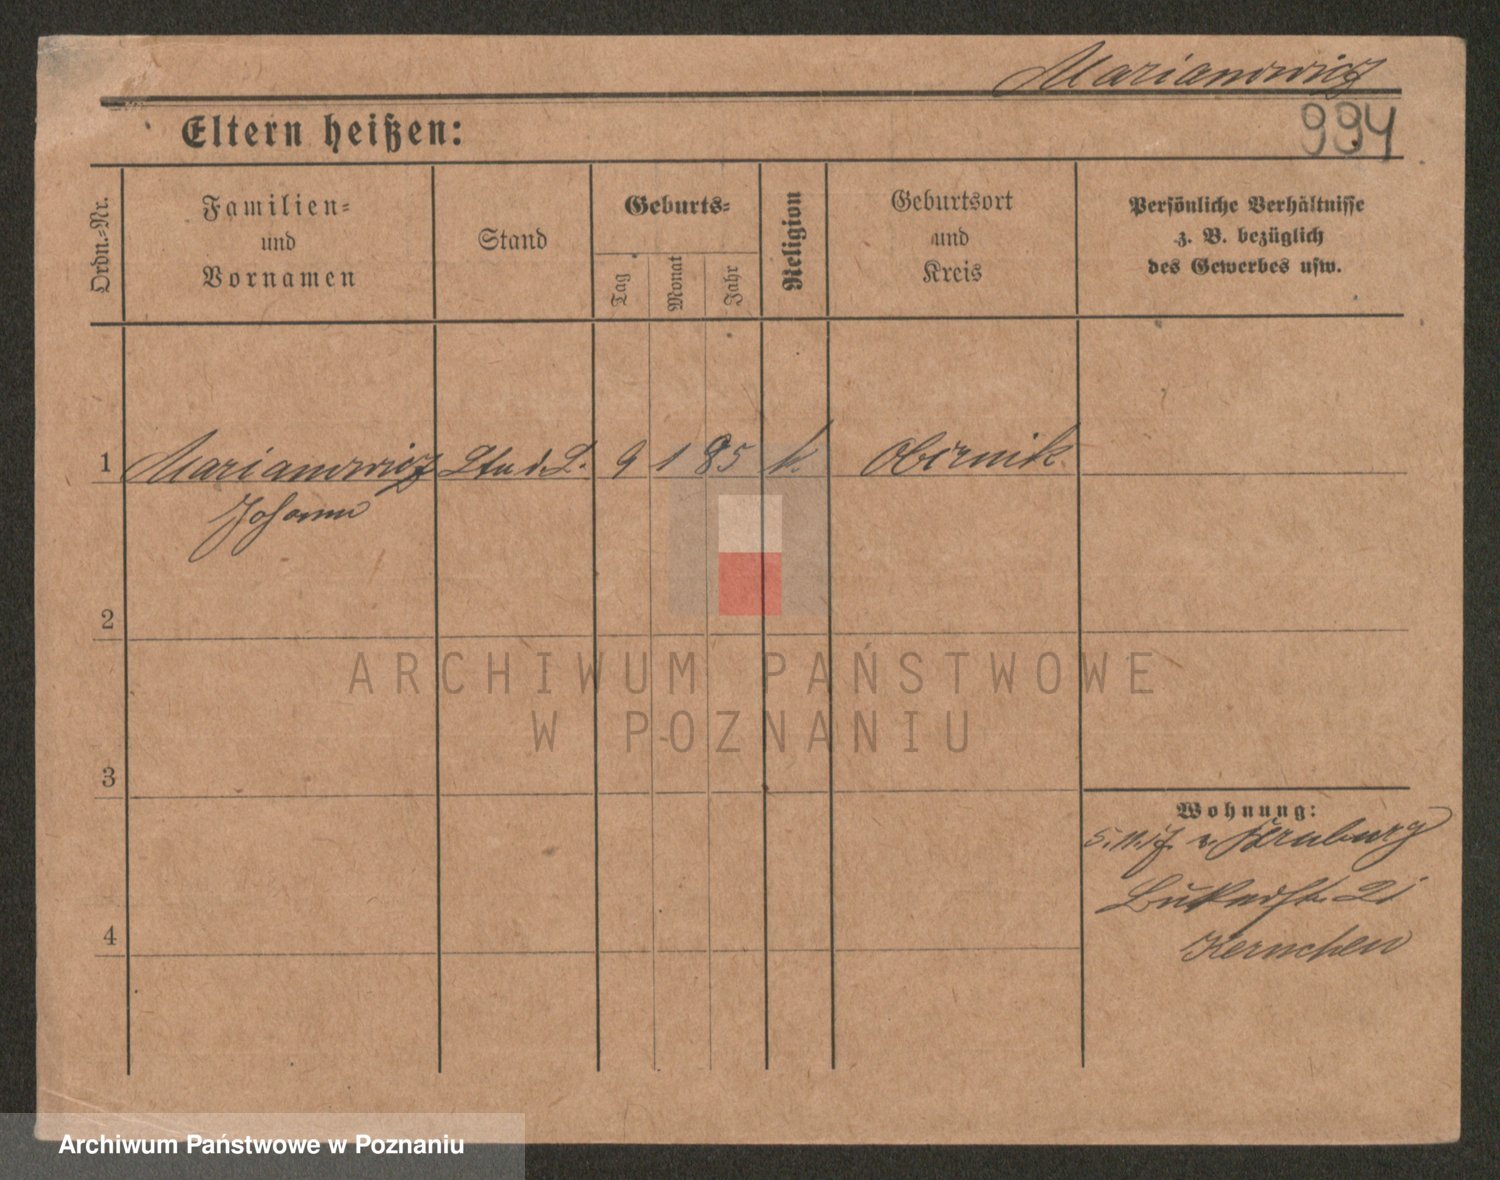 Marianowicz
994
Eltern heißen:
Ordn.-Nr.
Familien-
und
Vornamen
Stand
Geburts-
Tag
Monat
Jahr
Religion
Geburtsort
und
Kreis
Persönliche Verhältnisse
z. B. bezüglich
des Gewerbes usw.
1 Marianowicz Ltn d. L. 9 1 85 k. Obernik
Johann
2
ARCHIWUM PAŃSTWOWE
W POZNANIU
3
Wohnung:
5.11.17. v.
21
4
Archiwum Państwowe w Poznaniu